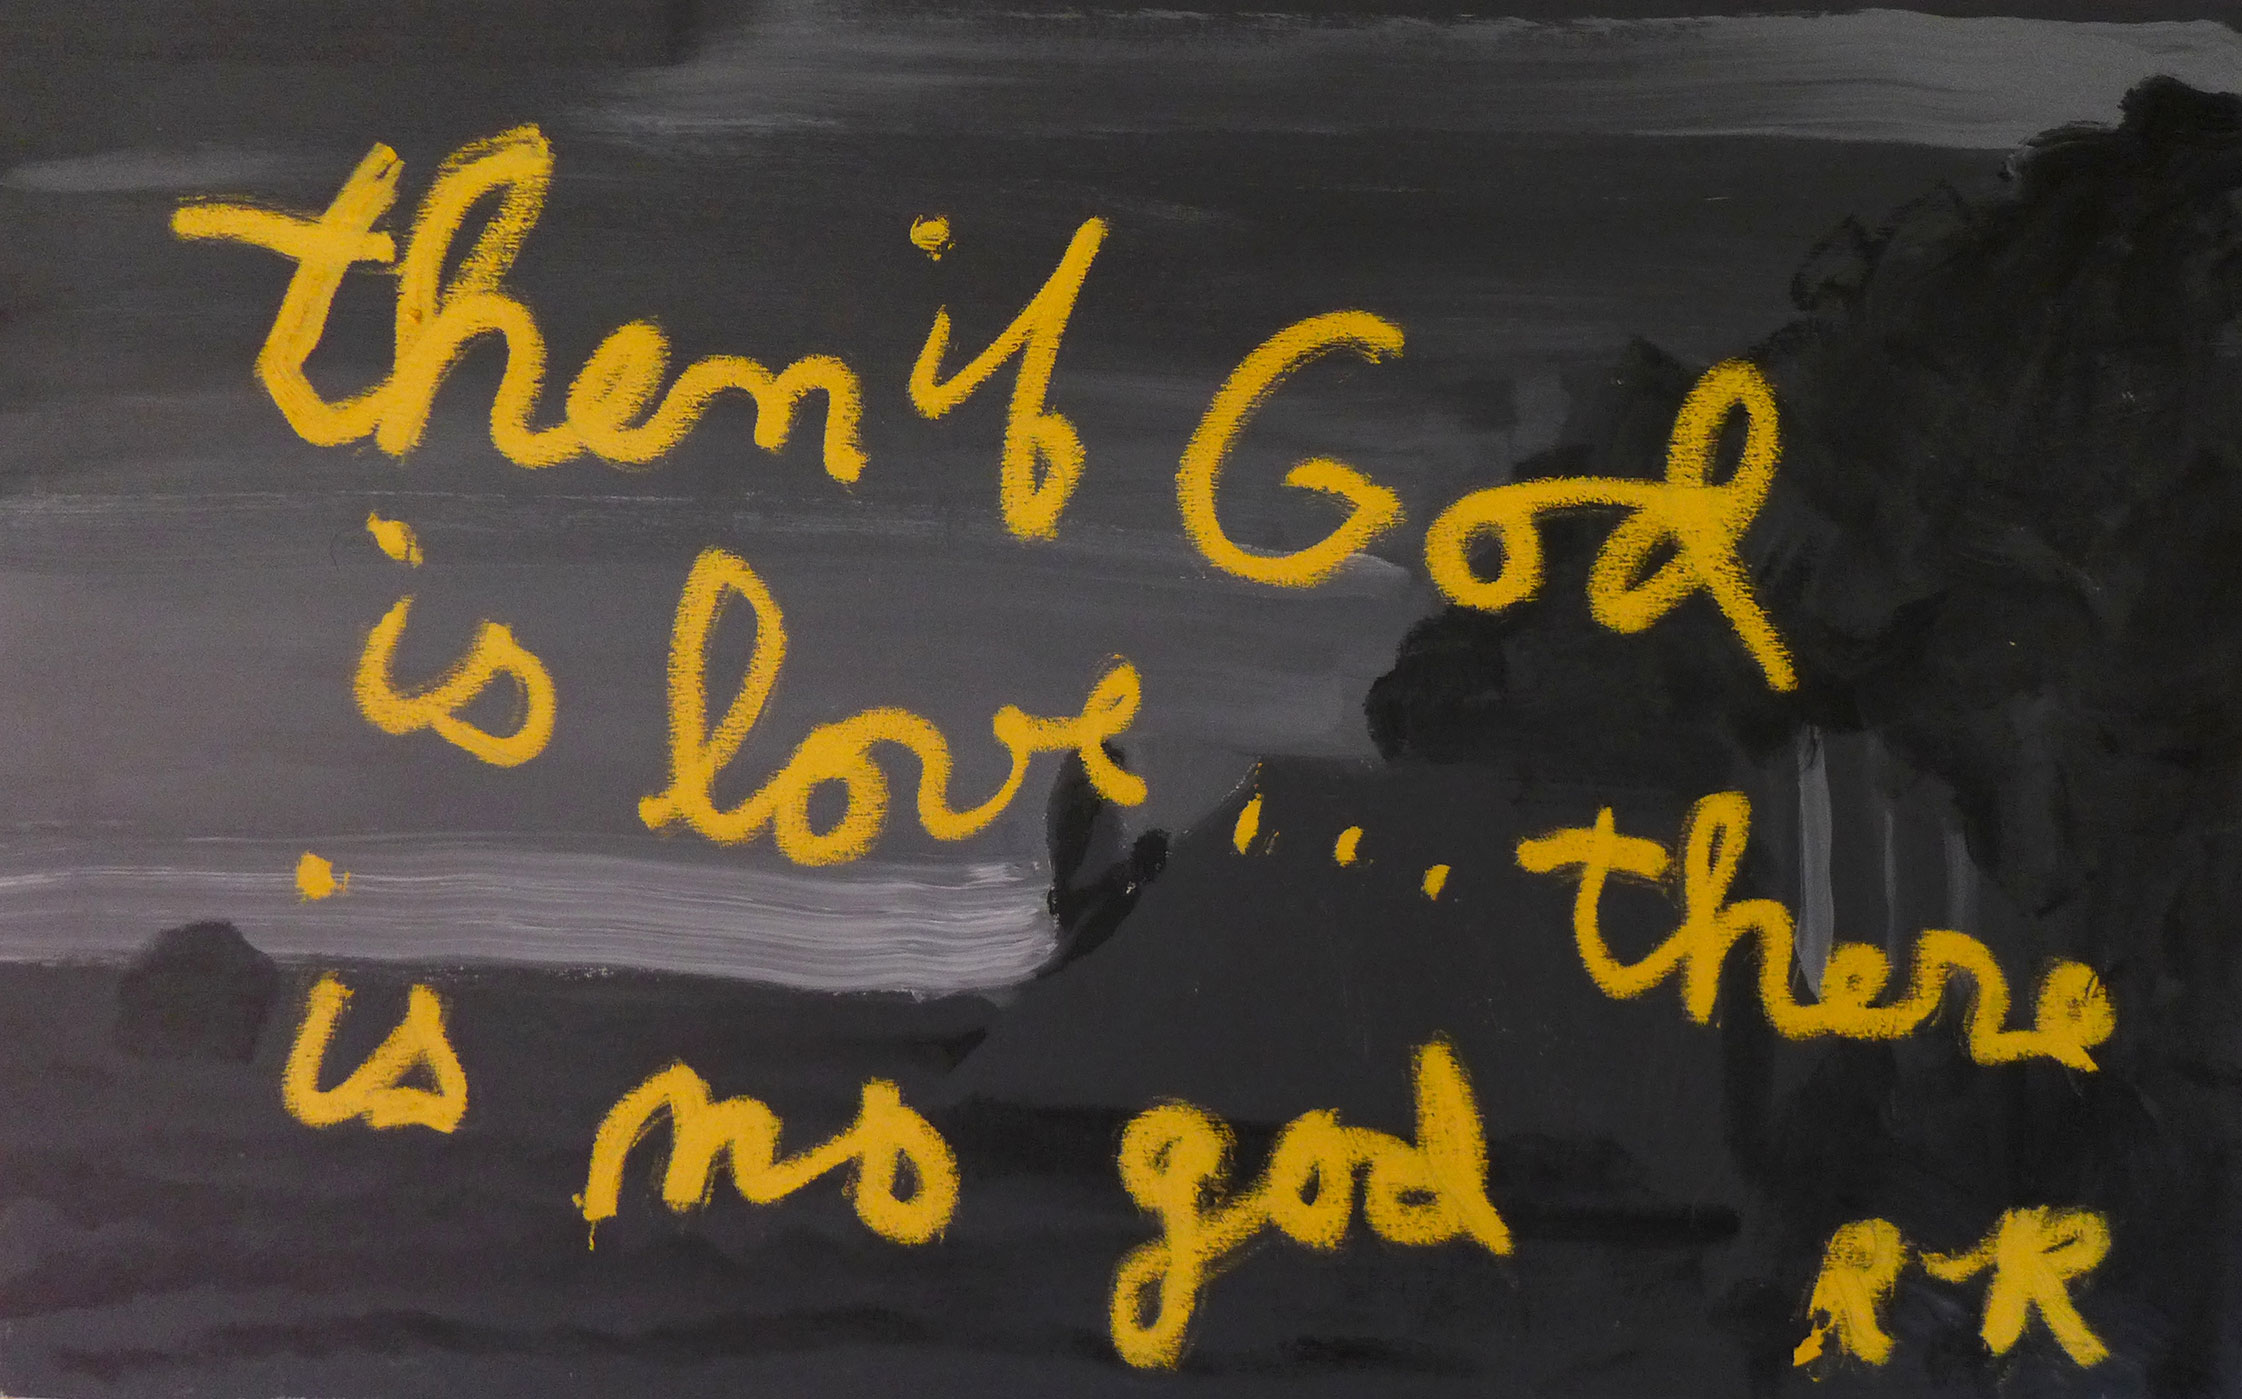 then if God
is love... there
is no god
R-R